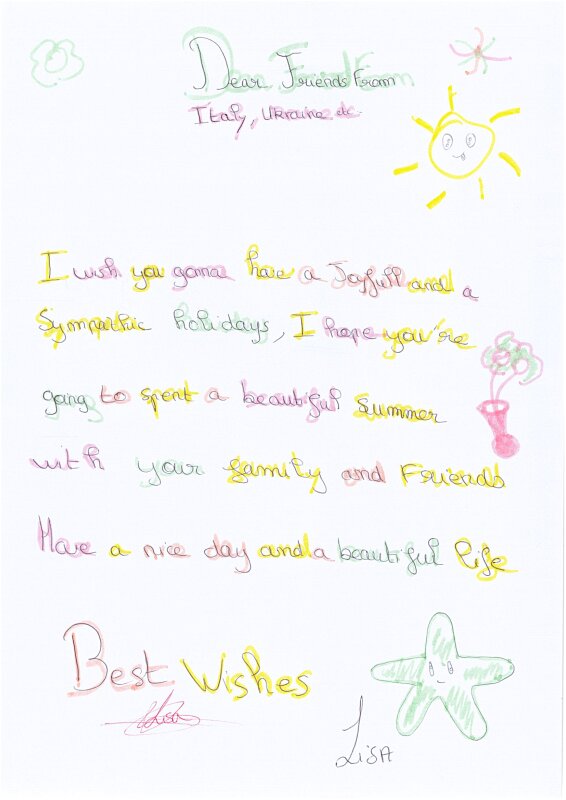 Dear Friends From
Italy, Ukraine etc.
I wish you gonna have a Joyfull and a
Sympathic holidays, I hope you're
going to spent a beautiful Summer
with your family and Friends
Have a nice day and a beautiful life
Best Wishes
Lisa
LISA